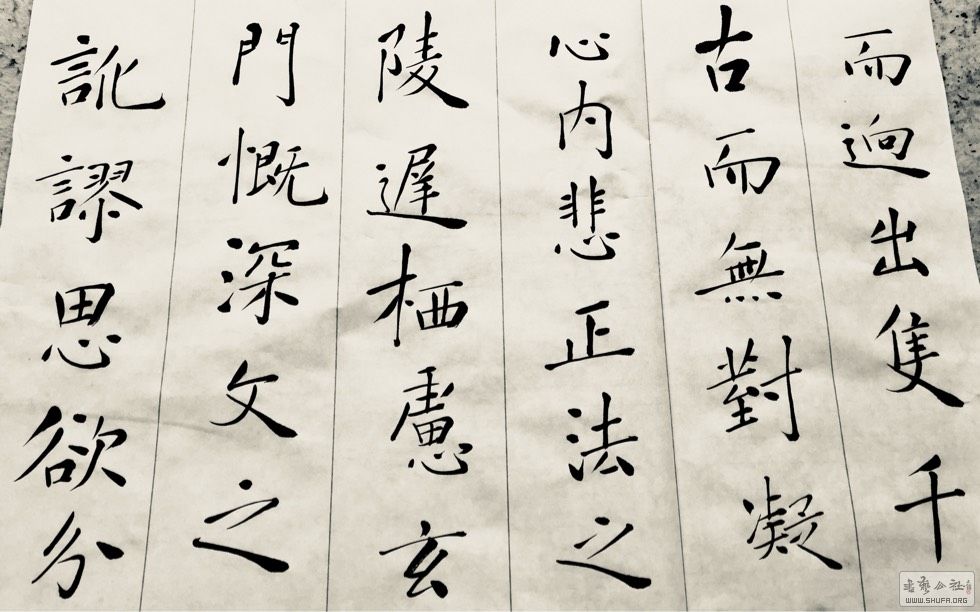 而迥出隻千
古而無對凝
心內悲正法之
陵遲栖慮玄
門慨深文之
訛謬思欲分
WWW.SHUFA.ORG